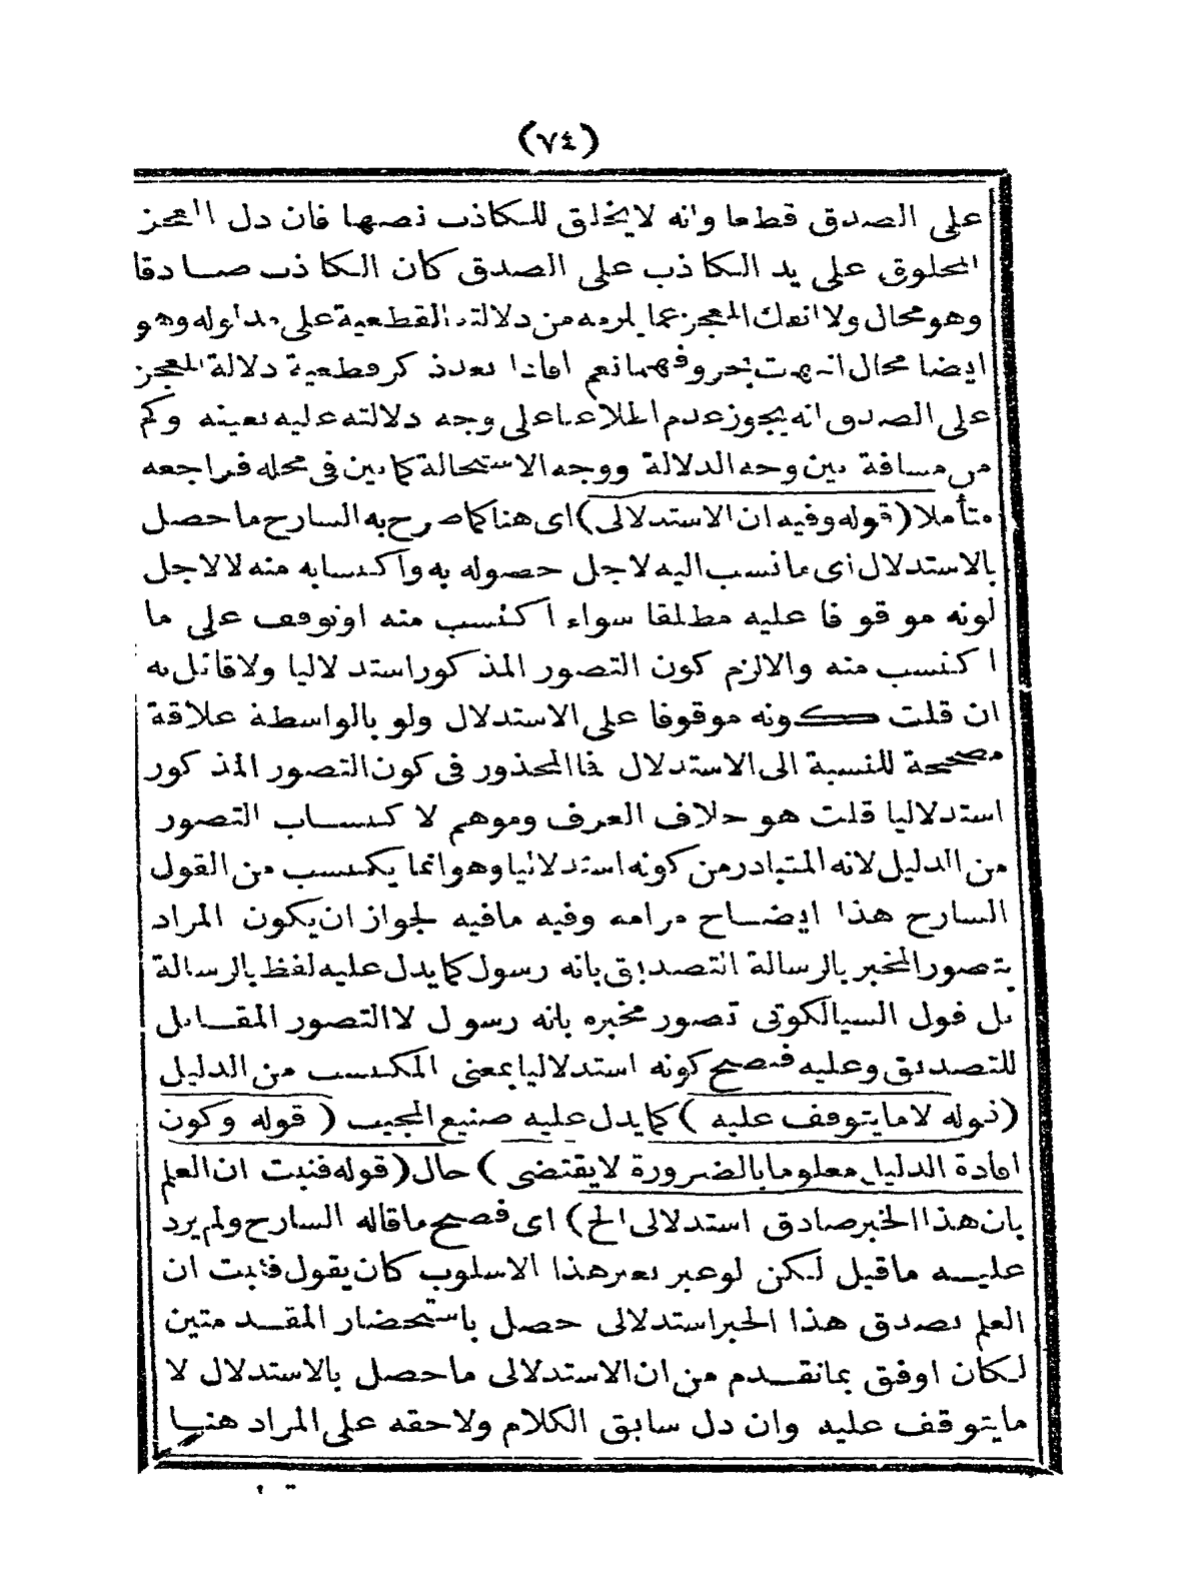 (٧٤)
على الصدق قطعا وانه لايخلق للكاذب نصبها فان دل المعجز
المخلوق على يد الكاذب على الصدق كان الكاذب صادقا
وهو محال ولا انفك المعجز عما يلزمه من دلالته القطعية على مدلوله وهو
ايضا محال انتهت بحروفهما نعم افادا بعد ذكر قطعية دلالة المعجز
على الصدق انه يجوز عدم اطلاعنا على وجه دلالته عليه بعينه وكم
من مسافة بين وجه الدلالة ووجه الاستحالة كما بين فى محله فراجعه
متأملا (قوله وفيه ان الاستدلالى) اى هنا كما صرح به الشارح ما حصل
بالاستدلال اى ما نسب اليه لاجل حصوله به واكتسابه منه لالاجل
كونه موقوفا عليه مطلقا سواء اكتسب منه او توقف على ما
اكتسب منه والالزم كون التصور المذكور استدلاليا ولا قائل به
ان قلت كونه موقوفا على الاستدلال ولو بالواسطة علاقة
مصححة للنسبة الى الاستدلال فما المحذور فى كون التصور المذكور
استدلاليا قلت هو خلاف العرف وموهم لاكتساب التصور
من الدليل لانه المتبادر من كونه استدلاليا وهو انما يكتسب من القول
الشارح هذا ايضاح مرامه وفيه مافيه لجواز ان يكون المراد
بتصور المخبر بالرسالة التصديق بانه رسول كما يدل عليه لفظ بالرسالة
بل قول السيالكوتى تصور مخبره بانه رسول لا التصور المقابل
للتصديق وعليه فيصح كونه استدلاليا بمعنى المكتسب من الدليل
(قوله لا ما يتوقف عليه) كما يدل عليه صنيع المجيب (قوله وكون
افادة الدليل معلوما بالضرورة لا يقتضى) حال (قوله فثبت ان العلم
بان هذا الخبر صادق استدلالى الخ) اى فصح ما قاله الشارح ولم يرد
عليه ما قيل لكن لو عبر بغير هذا الاسلوب كان يقول فثبت ان
العلم بصدق هذا الخبر استدلالى حصل باستحضار المقدمتين
لكان اوفق بما تقدم من ان الاستدلالى ما حصل بالاستدلال لا
ما يتوقف عليه وان دل سابق الكلام ولاحقه على المراد هنا